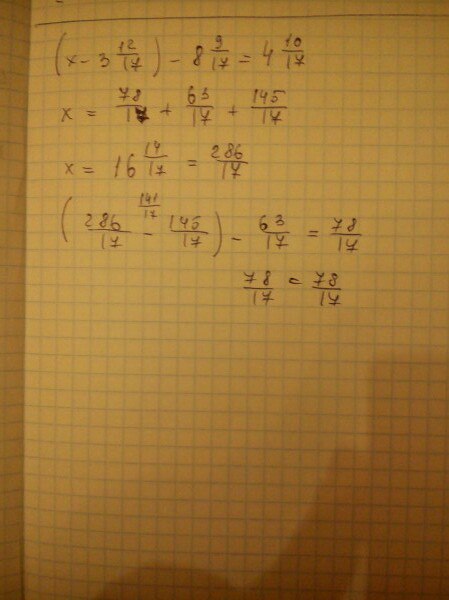 (x - 3 12/17) - 8 9/17 = 4 10/17
x = 78/17 + 63/17 + 145/17
x = 16 14/17 = 286/17
141/17
(286/17 - 145/17) - 63/17 = 78/17
78/17 = 78/17